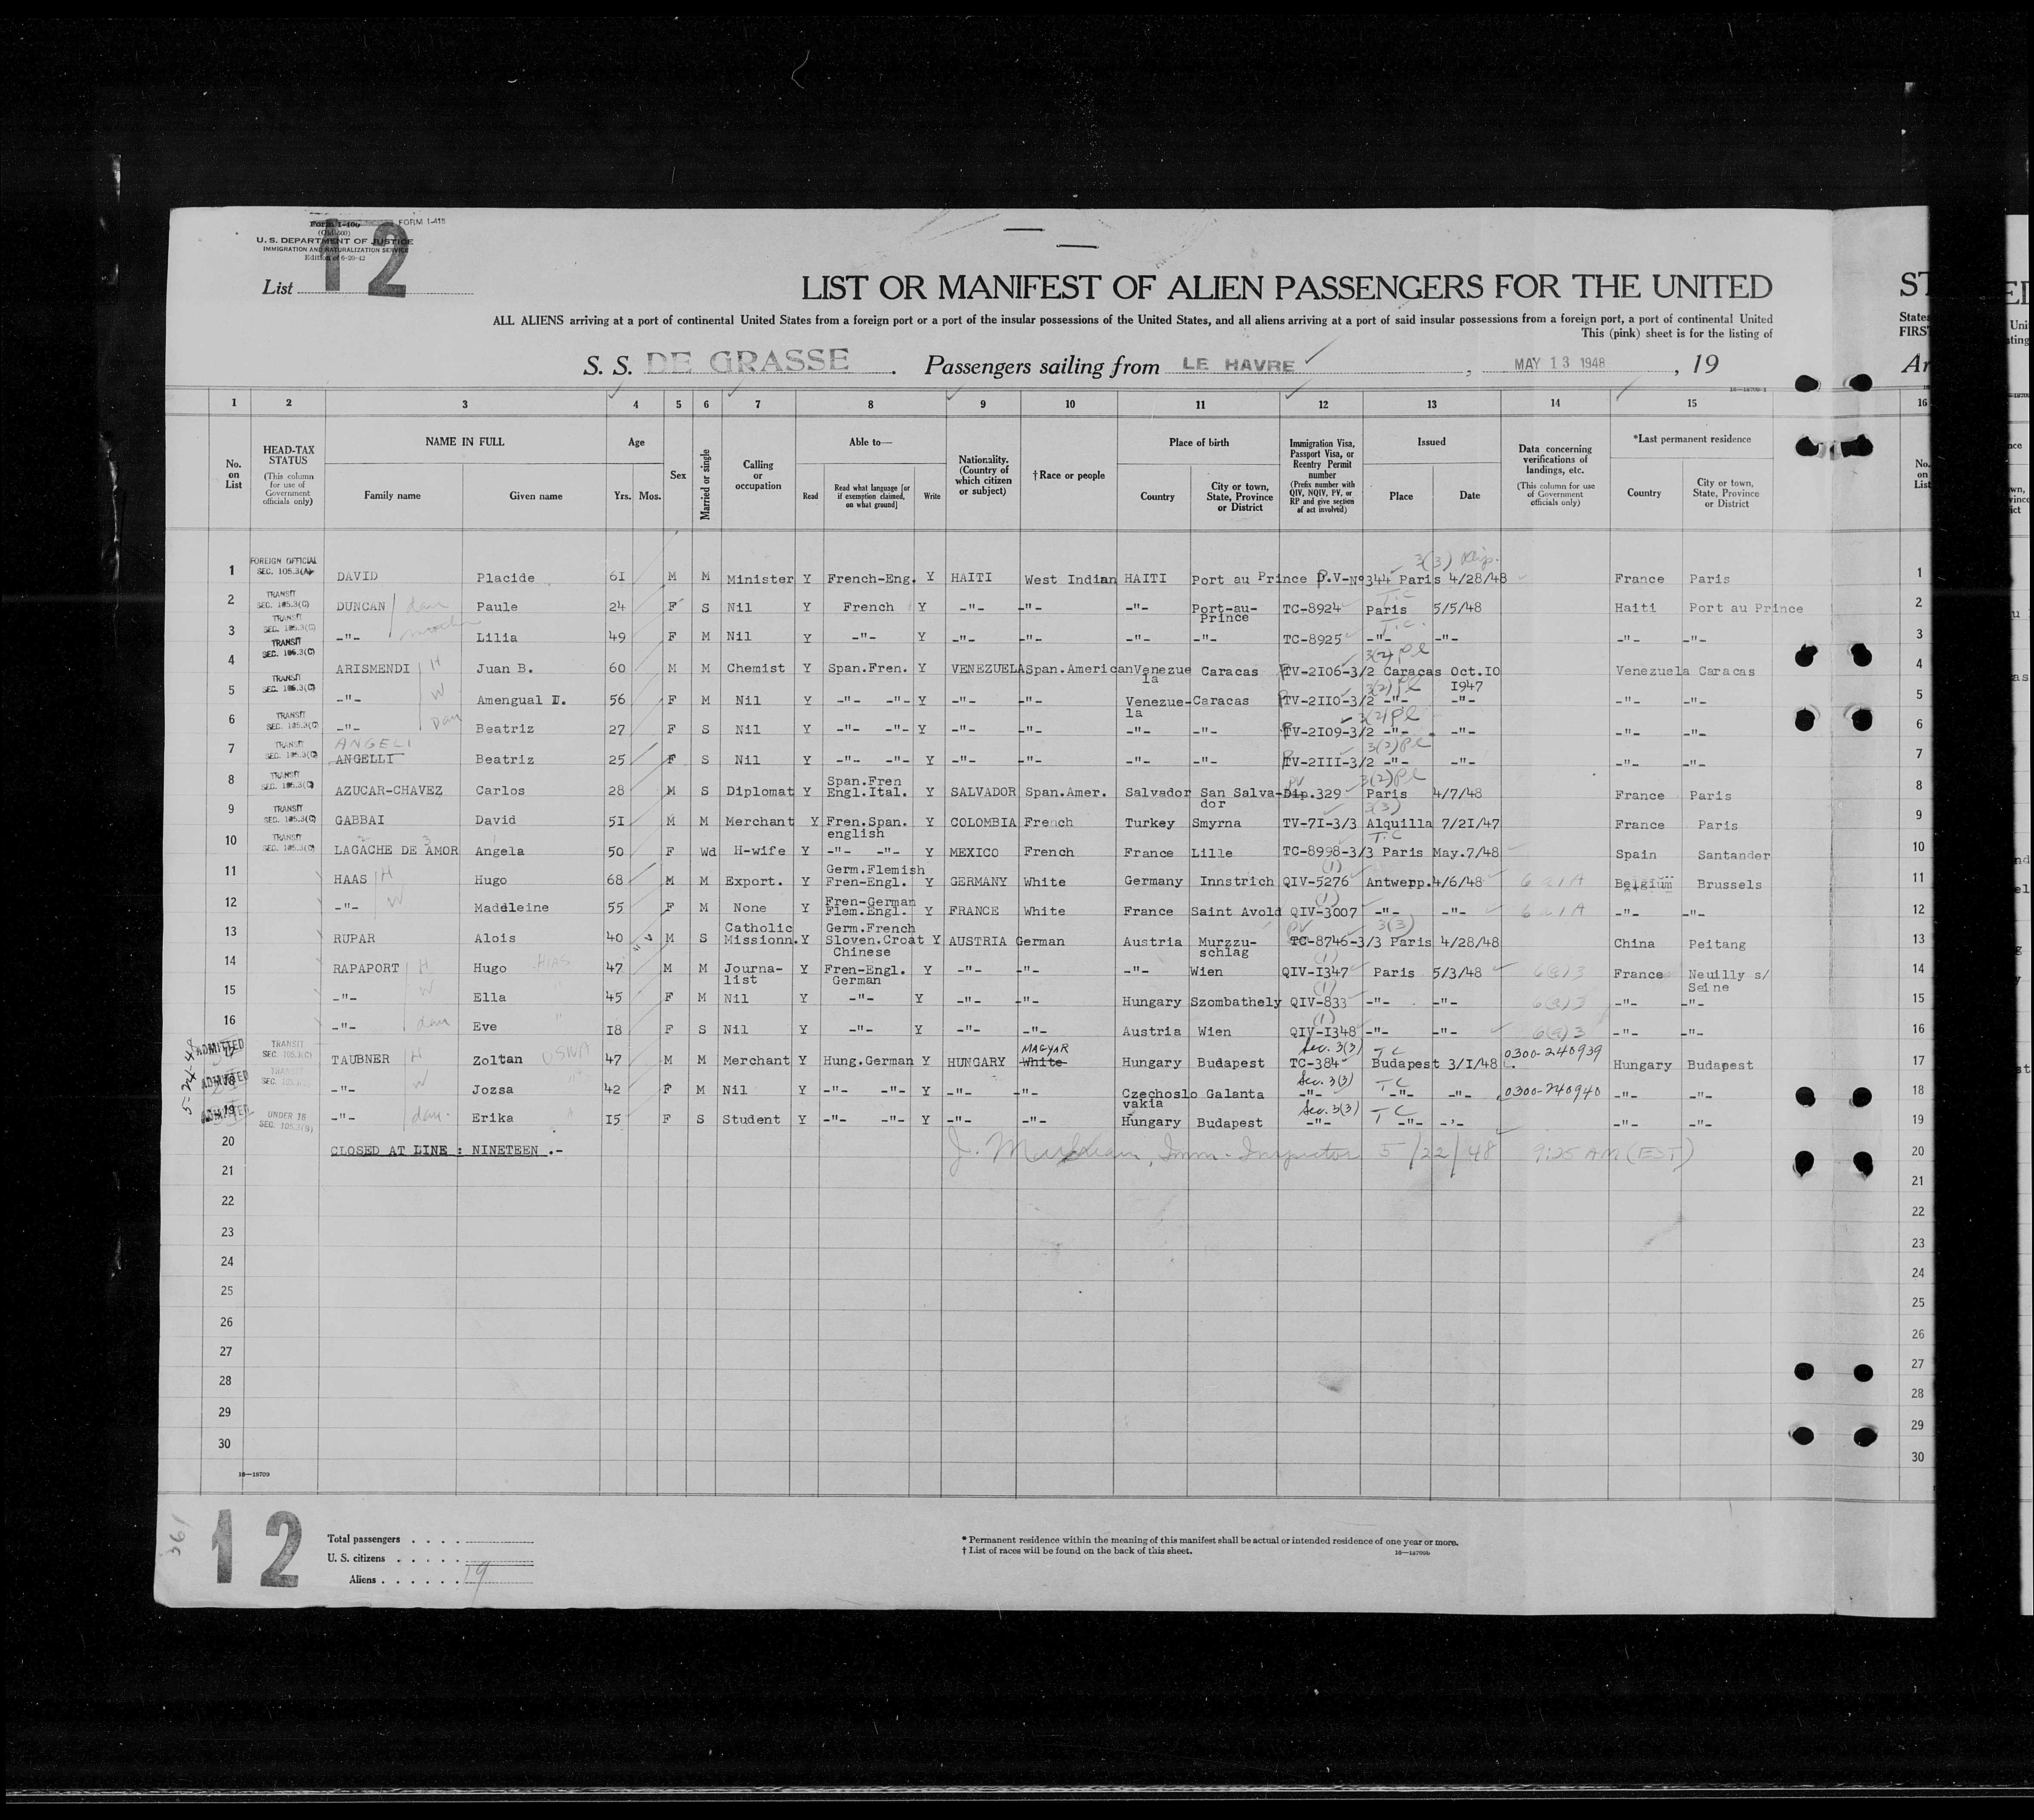 Form I-400 FORM I-415
(Old 500)
U. S. DEPARTMENT OF JUSTICE
IMMIGRATION AND NATURALIZATION SERVICE
Edition of 6-20-42
List 12
LIST OR MANIFEST OF ALIEN PASSENGERS FOR THE UNITED
ALL ALIENS arriving at a port of continental United States from a foreign port or a port of the insular possessions of the United States, and all aliens arriving at a port of said insular possessions from a foreign port, a port of continental United
This (pink) sheet is for the listing of
S. S. DE GRASSE . Passengers sailing from LE HAVRE , MAY 13 1948 , 19
1 2 3 4 5 6 7 8 9 10 11 12 13 14 15 16
No. on List
HEAD-TAX STATUS (This column for use of Government officials only)
NAME IN FULL Family name Given name
Age Yrs. Mos.
Sex
Married or single
Calling or occupation
Able to— Read Read what language [or if exemption claimed, on what ground] Write
Nationality. (Country of which citizen or subject)
†Race or people
Place of birth Country City or town, State, Province or District
Immigration Visa, Passport Visa, or Reentry Permit number (Prefix number with QIV, NQIV, PV, or RP and give section of act involved)
Issued Place Date
Data concerning verifications of landings, etc. (This column for use of Government officials only)
*Last permanent residence Country City or town, State, Province or District
No. on List
3(3) Dip.
1 FOREIGN OFFICIAL SEC. 105.3(A) DAVID Placide 61 M M Minister Y French-Eng. Y HAITI West Indian HAITI Port au Prince P.V-Nº344 Paris 4/28/48 France Paris 1
2 TRANSIT SEC. 105.3(C) DUNCAN dau Paule 24 F S Nil Y French Y -"- -"- -"- Port-au-Prince TC-8924 T.C Paris 5/5/48 Haiti Port au Prince 2
3 TRANSIT SEC. 105.3(C) -"- mother Lilia 49 F M Nil Y -"- Y -"- -"- -"- -"- TC-8925 T.C. -"- -"- -"- -"- 3
4 TRANSIT SEC. 105.3(C) ARISMENDI H Juan B. 60 M M Chemist Y Span.Fren. Y VENEZUELA Span.American Venezuela Caracas TV-2106-3/2 3(2) Caracas Oct.10 1947 Venezuela Caracas 4
5 TRANSIT SEC. 105.3(C) -"- W Amengual D. 56 F M Nil Y -"- -"- Y -"- -"- Venezue-la Caracas TV-2110-3/2 3(2) -"- -"- -"- -"- 5
6 TRANSIT SEC. 105.3(C) -"- Dau Beatriz 27 F S Nil Y -"- -"- Y -"- -"- -"- -"- TV-2109-3/2 3(2) -"- -"- -"- -"- 6
ANGELI
7 TRANSIT SEC. 105.3(C) ANGELLI Beatriz 25 F S Nil Y -"- -"- Y -"- -"- -"- -"- TV-2111-3/2 3(2) -"- -"- -"- -"- 7
8 TRANSIT SEC. 105.3(C) AZUCAR-CHAVEZ Carlos 28 M S Diplomat Y Span.Fren Engl.Ital. Y SALVADOR Span.Amer. Salvador San Salva-dor PV Dip.329 3(2) Paris 4/7/48 France Paris 8
9 TRANSIT SEC. 105.3(C) GABBAI David 51 M M Merchant Y Fren.Span. english Y COLOMBIA French Turkey Smyrna TV-71-3/3 3(3) Alquilla 7/21/47 France Paris 9
10 TRANSIT SEC. 105.3(C) LAGACHE DE AMOR Angela 50 F Wd H-wife Y -"- -"- Y MEXICO French France Lille TC-8998-3/3 T.C Paris May.7/48 Spain Santander 10
11 HAAS H Hugo 68 M M Export. Y Germ.Flemish Fren-Engl. Y GERMANY White Germany Innstrich QIV-5276 (1) Antwerp. 4/6/48 Belgium Brussels 11
12 -"- W Maddleine 55 F M None Y Fren-German Flem.Engl. Y FRANCE White France Saint Avold QIV-3007 (1) -"- -"- -"- -"- 12
13 RUPAR Alois 40 M S Catholic Missionn. Y Germ.French Sloven.Croat Chinese Y AUSTRIA German Austria Murzzu-schlag PV TC-8746-3/3 3(3) Paris 4/28/48 China Peitang 13
14 RAPAPORT H Hugo HIAS 47 M M Journa-list Y Fren-Engl. German Y -"- -"- -"- Wien QIV-1347 (1) Paris 5/3/48 6(a)3 France Neuilly s/ Seine 14
15 -"- W Ella " 45 F M Nil Y -"- Y -"- -"- Hungary Szombathely QIV-833 (1) -"- -"- 6(a)3 -"- -"- 15
16 -"- dau Eve " 18 F S Nil Y -"- Y -"- -"- Austria Wien QIV-1348 (1) -"- -"- 6(a)3 -"- -"- 16
5-24-48
17 ADMITTED TRANSIT SEC. 105.3(C) TAUBNER H Zoltan USNA 47 M M Merchant Y Hung.German Y HUNGARY MAGYAR White Hungary Budapest Sec. 3(3) TC-384 TC Budapest 3/1/48 0300-240939 Hungary Budapest 17
18 ADMITTED TRANSIT SEC. 105.3(C) -"- W Jozsa 42 F M Nil Y -"- -"- Y -"- -"- Czechoslovakia Galanta Sec. 3(3) -"- TC -"- -"- 0300-240940 -"- -"- 18
19 ADMITTED UNDER 16 SEC. 105.3(B) -"- dau. Erika 15 F S Student Y -"- -"- Y -"- -"- Hungary Budapest Sec. 3(3) -"- TC -"- -"- -"- -"- 19
20 CLOSED AT LINE : NINETEEN .- Imm. Inspector 5/22/48 9:25 AM (EST) 20
21 21
22 22
23 23
24 24
25 25
26 26
27 27
28 28
29 29
30 30
16—18709
361
12
Total passengers
U. S. citizens
Aliens 19
* Permanent residence within the meaning of this manifest shall be actual or intended residence of one year or more.
† List of races will be found on the back of this sheet.
16—18709b